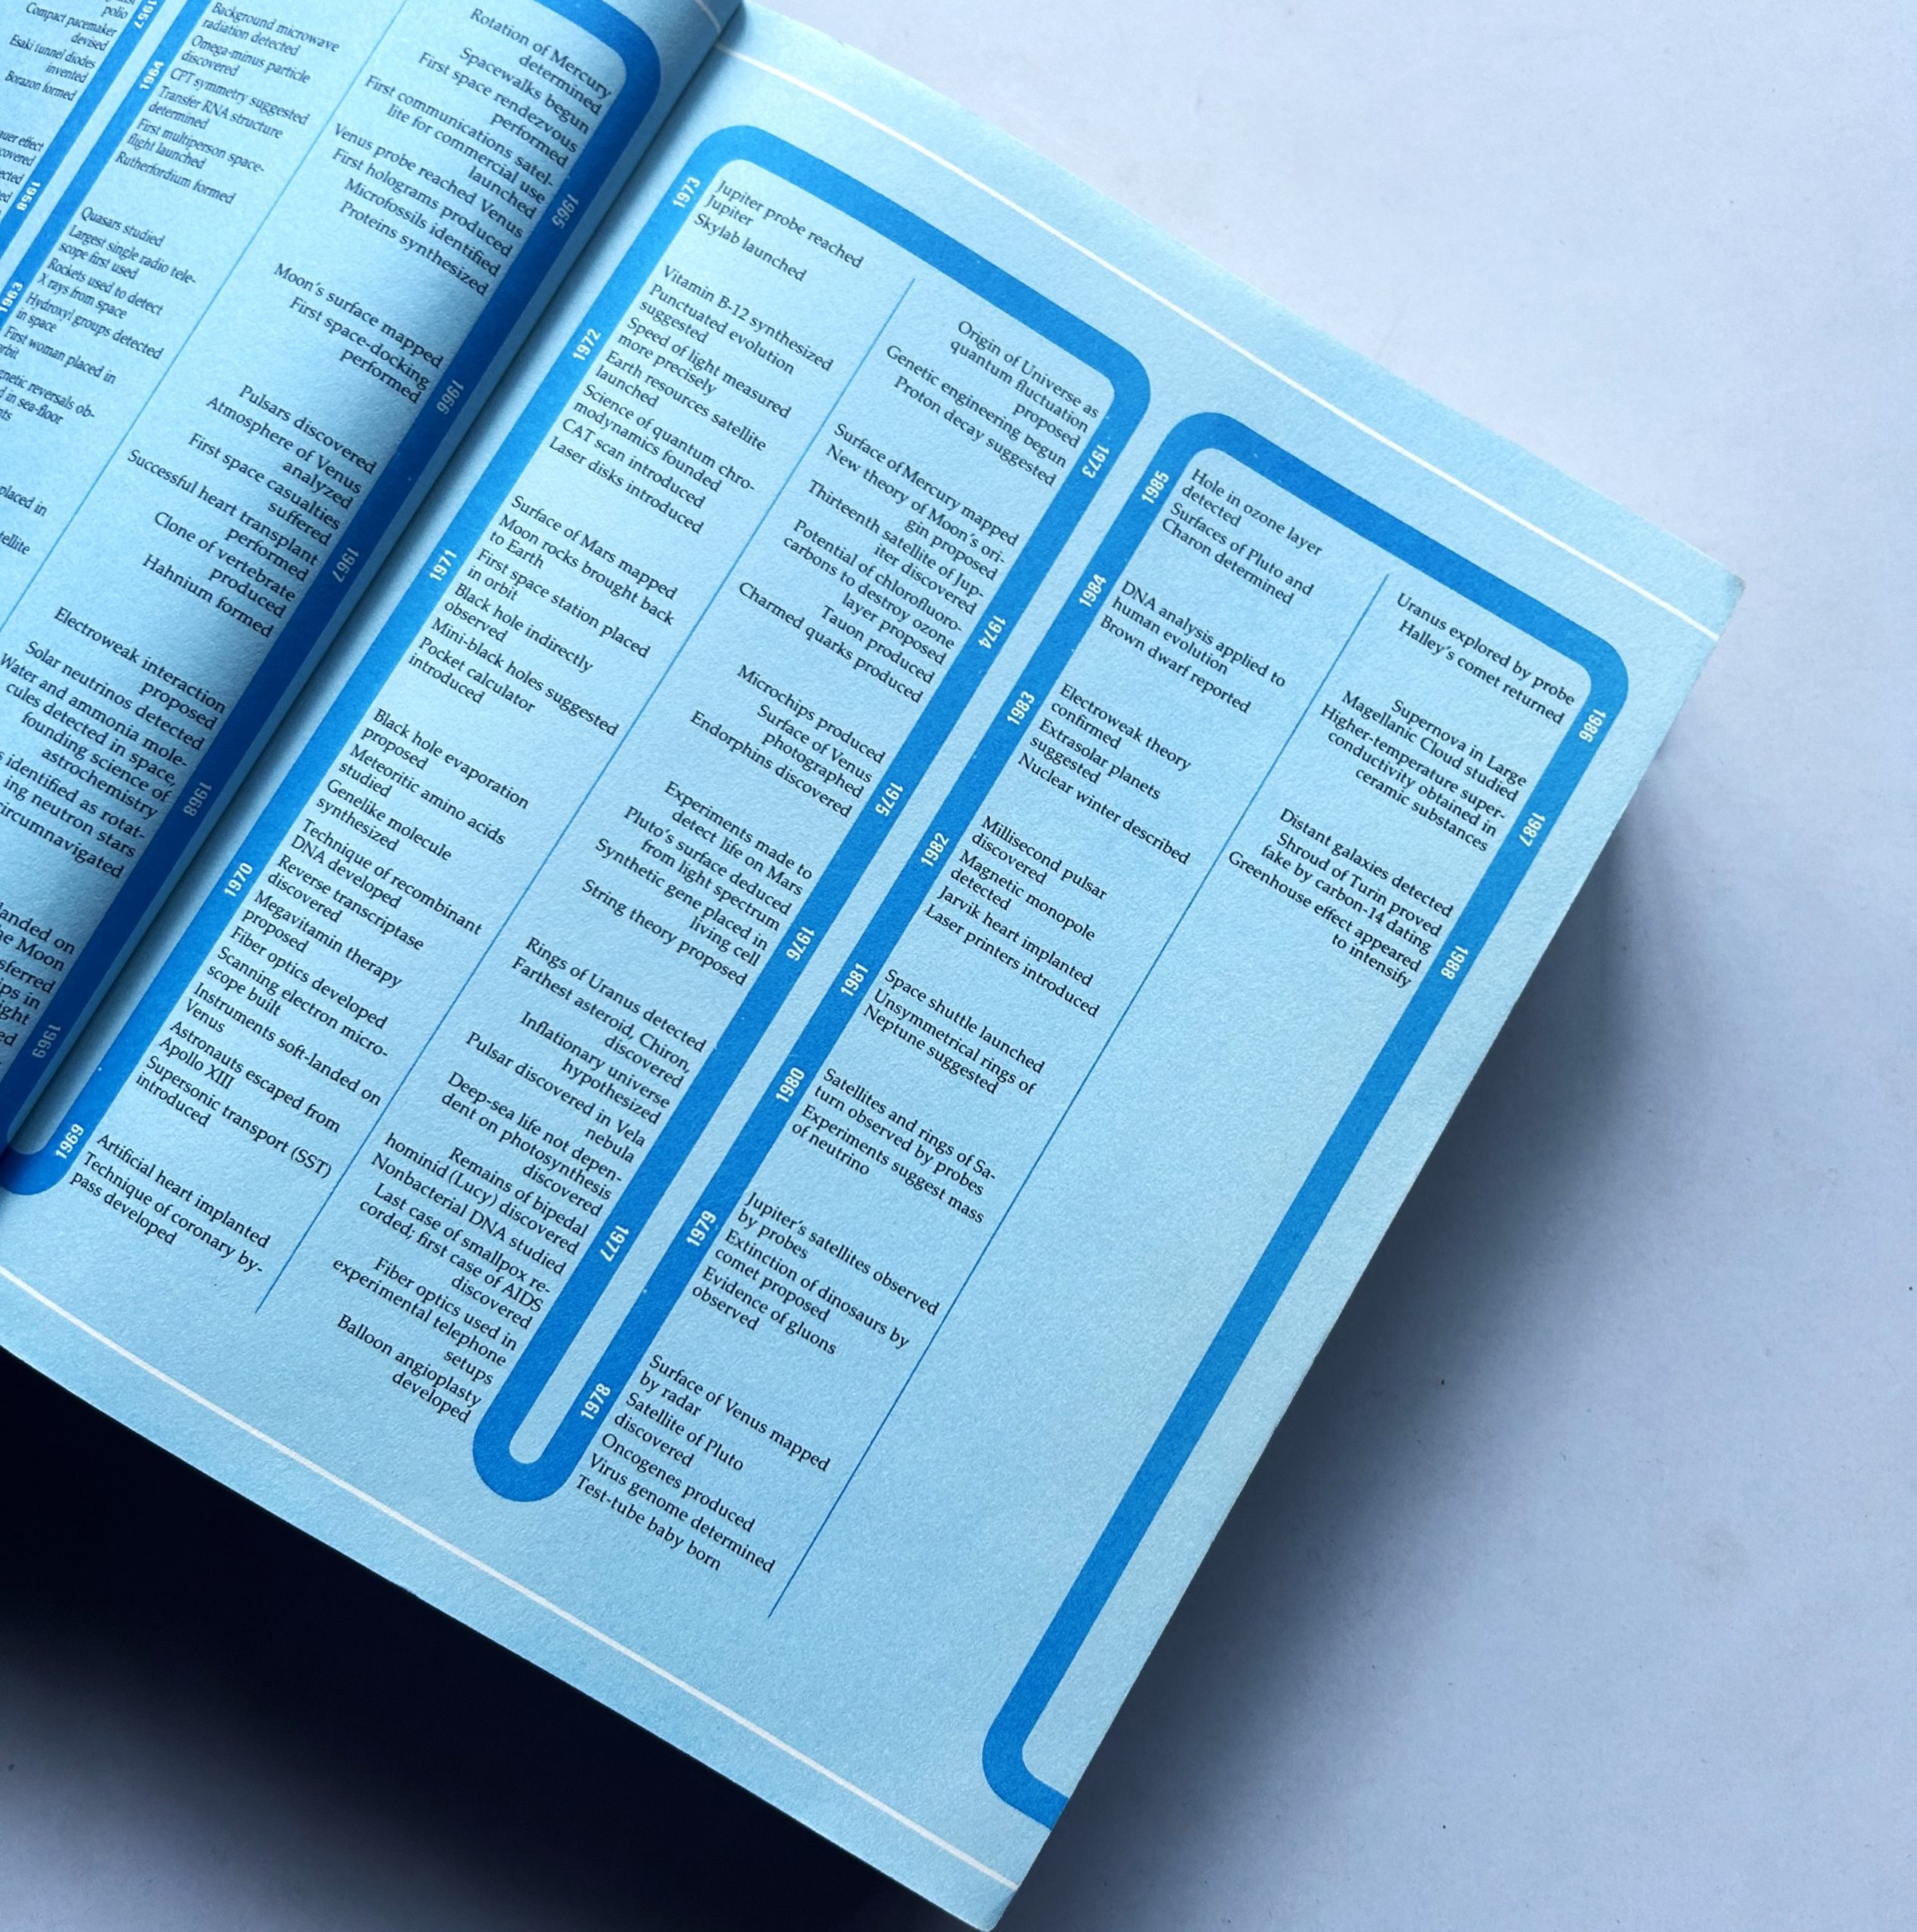 polio
Compact pacemaker
devised
Esaki tunnel diodes
invented
Borazon formed
1964
Background microwave
radiation detected
Omega-minus particle
discovered
CPT symmetry suggested
Transfer RNA structure
determined
First multiperson space-
flight launched
Rutherfordium formed
1963
Quasars studied
Largest single radio tele-
scope first used
Rockets used to detect
X rays from space
Hydroxyl groups detected
in space
First woman placed in
Rotation of Mercury
determined
Spacewalks begun
First space rendezvous
performed
First communications satel-
lite for commercial use
launched
Venus probe reached Venus
First holograms produced
Microfossils identified
Proteins synthesized
1965
Moon's surface mapped
First space-docking
performed
1966
Pulsars discovered
Atmosphere of Venus
analyzed
First space casualties
suffered
Successful heart transplant
performed
Clone of vertebrate
produced
Hahnium formed
1967
Electroweak interaction
proposed
Solar neutrinos detected
Water and ammonia mole-
cules detected in space,
founding science of
astrochemistry
identified as rotat-
ing neutron stars
circumnavigated
1968
landed on
Moon
1969
1973
Jupiter probe reached
Jupiter
Skylab launched
1972
Vitamin B-12 synthesized
Punctuated evolution
suggested
Speed of light measured
more precisely
Earth resources satellite
launched
Science of quantum chro-
modynamics founded
CAT scan introduced
Laser disks introduced
1971
Surface of Mars mapped
Moon rocks brought back
to Earth
First space station placed
in orbit
Black hole indirectly
observed
Mini-black holes suggested
Pocket calculator
introduced
1970
Black hole evaporation
proposed
Meteoritic amino acids
studied
Genelike molecule
synthesized
Technique of recombinant
DNA developed
Reverse transcriptase
discovered
Megavitamin therapy
proposed
Fiber optics developed
Scanning electron micro-
scope built
Instruments soft-landed on
Venus
Astronauts escaped from
Apollo XIII
Supersonic transport (SST)
introduced
1969
Artificial heart implanted
Technique of coronary by-
pass developed
Origin of Universe as
quantum fluctuation
proposed
Genetic engineering begun
Proton decay suggested
1973
Surface of Mercury mapped
New theory of Moon's ori-
gin proposed
Thirteenth satellite of Jup-
iter discovered
Potential of chlorofluoro-
carbons to destroy ozone
layer proposed
Tauon produced
Charmed quarks produced
1974
Microchips produced
Surface of Venus
photographed
Endorphins discovered
1975
Experiments made to
detect life on Mars
Pluto's surface deduced
from light spectrum
Synthetic gene placed in
living cell
String theory proposed
1976
Rings of Uranus detected
Farthest asteroid, Chiron,
discovered
Inflationary universe
hypothesized
Pulsar discovered in Vela
nebula
Deep-sea life not depen-
dent on photosynthesis
discovered
Remains of bipedal
hominid (Lucy) discovered
Nonbacterial DNA studied
Last case of smallpox re-
corded; first case of AIDS
discovered
Fiber optics used in
experimental telephone
setups
Balloon angioplasty
developed
1977
1985
Hole in ozone layer
detected
Surfaces of Pluto and
Charon determined
1984
DNA analysis applied to
human evolution
Brown dwarf reported
1983
Electroweak theory
confirmed
Extrasolar planets
suggested
Nuclear winter described
1982
Millisecond pulsar
discovered
Magnetic monopole
detected
Jarvik heart implanted
Laser printers introduced
1981
Space shuttle launched
Unsymmetrical rings of
Neptune suggested
1980
Satellites and rings of Sa-
turn observed by probes
Experiments suggest mass
of neutrino
1979
Jupiter's satellites observed
by probes
Extinction of dinosaurs by
comet proposed
Evidence of gluons
observed
1978
Surface of Venus mapped
by radar
Satellite of Pluto
discovered
Oncogenes produced
Virus genome determined
Test-tube baby born
Uranus explored by probe
Halley's comet returned
1986
Supernova in Large
Magellanic Cloud studied
Higher-temperature super-
conductivity obtained in
ceramic substances
1987
Distant galaxies detected
Shroud of Turin proved
fake by carbon-14 dating
Greenhouse effect appeared
to intensify
1988